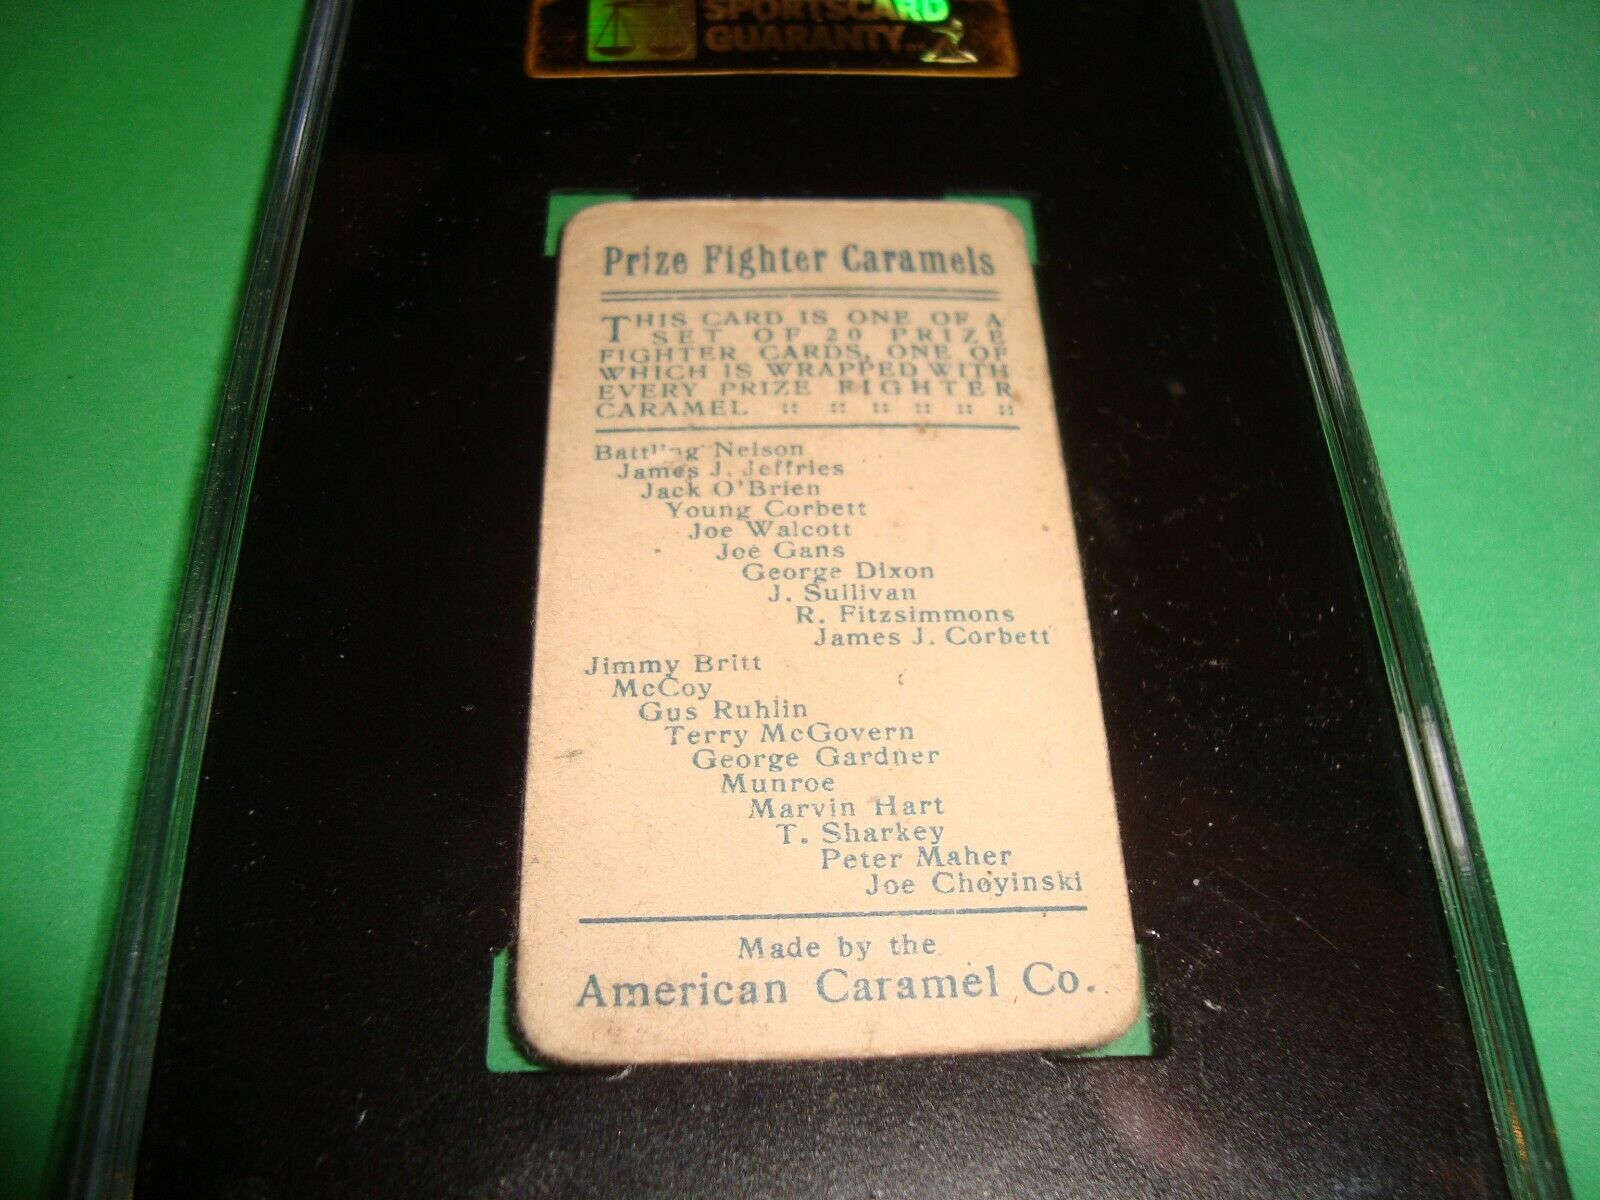 SPORTSCARD
GUARANTY
Prize Fighter Caramels
THIS CARD IS ONE OF A
SET OF 20 PRIZE
FIGHTER CARDS, ONE OF
WHICH IS WRAPPED WITH
EVERY PRIZE FIGHTER
CARAMEL :: :: :: :: :: ::
Battling Nelson
James J. Jeffries
Jack O'Brien
Young Corbett
Joe Walcott
Joe Gans
George Dixon
J. Sullivan
R. Fitzsimmons
James J. Corbett
Jimmy Britt
McCoy
Gus Ruhlin
Terry McGovern
George Gardner
Munroe
Marvin Hart
T. Sharkey
Peter Maher
Joe Choyinski
Made by the
American Caramel Co.